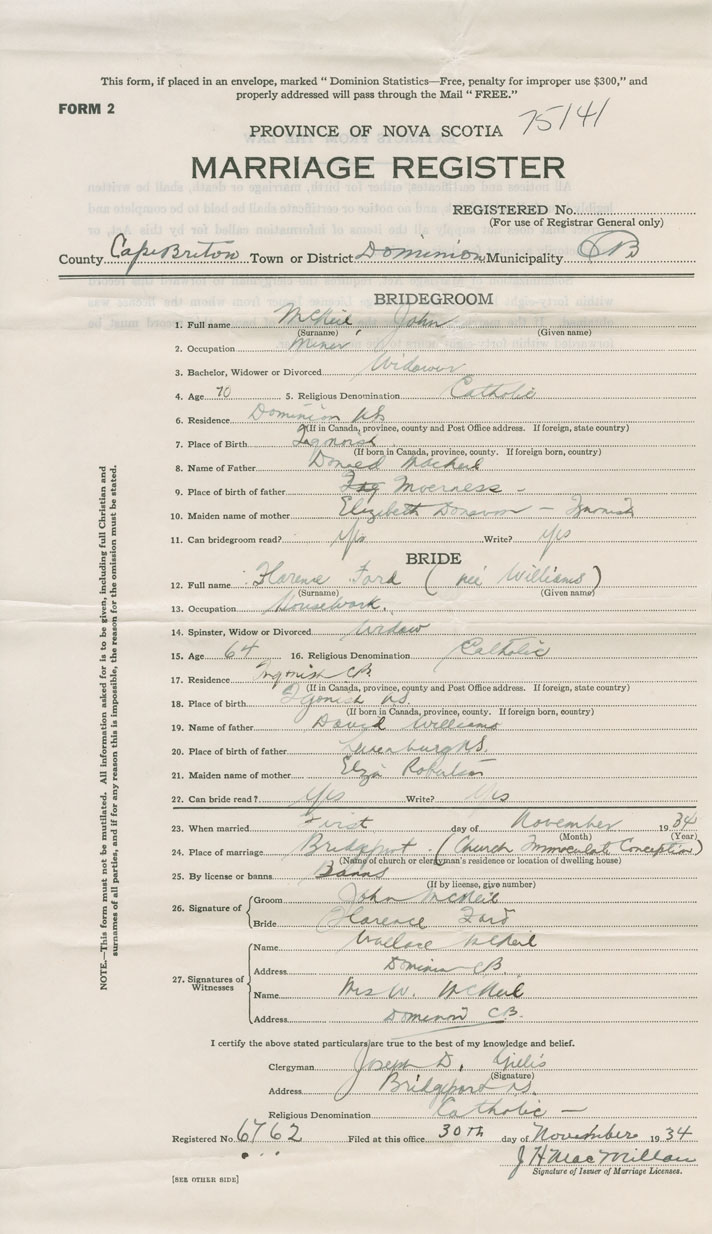 This form, if placed in an envelope, marked “ Dominion Statistics—Free, penalty for improper use $300,” and
properly addressed will pass through the Mail “ FREE.”
FORM 2
75141
PROVINCE OF NOVA SCOTIA
MARRIAGE REGISTER
REGISTERED No.
(For use of Registrar General only)
County Cape Briton Town or District Dominion Municipality CB
BRIDEGROOM
1. Full name McNeil, John
(Surname) (Given name)
2. Occupation Miner
3. Bachelor, Widower or Divorced Widower
4. Age 70 5. Religious Denomination Catholic
6. Residence Dominion NS
(If in Canada, province, county and Post Office address. If foreign, state country)
7. Place of Birth
(If born in Canada, province, county. If foreign born, country)
8. Name of Father Donald MacNeil
9. Place of birth of father Inverness -
10. Maiden name of mother Elizabeth Donovan -
11. Can bridegroom read? Yes Write? Yes
BRIDE
12. Full name Florence Ford (nei Williams)
(Surname) (Given name)
13. Occupation Housework.
14. Spinster, Widow or Divorced Widow
15. Age 64 16. Religious Denomination Catholic
17. Residence Ingonish CB
(If in Canada, province, county and Post Office address. If foreign, state country)
18. Place of birth Igonish NS
(If born in Canada, province, county. If foreign born, country)
19. Name of father David Williams
20. Place of birth of father Lunenburg NS.
21. Maiden name of mother Eliza Robertson
22. Can bride read? Yes Write? Yes
23. When married First day of November 1934
(Month) (Year)
24. Place of marriage Bridgeport (Church Immaculate Conception)
(Name of church or clergyman's residence or location of dwelling house)
25. By license or banns Banns
(If by license, give number)
26. Signature of
Groom John McNeil
Bride Florence Ford
27. Signatures of Witnesses
Name Wallace McNeil
Address Dominion CB.
Name Mrs W. McNeil
Address Dominion CB.
I certify the above stated particulars are true to the best of my knowledge and belief.
Clergyman Joseph D. Gillis
(Signature)
Address Bridgeport NS.
Religious Denomination Catholic —
Registered No. 6762 Filed at this office 30th day of November 1934
J H MacMillan
Signature of Issuer of Marriage Licenses.
[SEE OTHER SIDE]
NOTE.—This form must not be mutilated. All information asked for is to be given, including full Christian and
surnames of all parties, and if for any reason this is impossible, the reason for the omission must be stated.